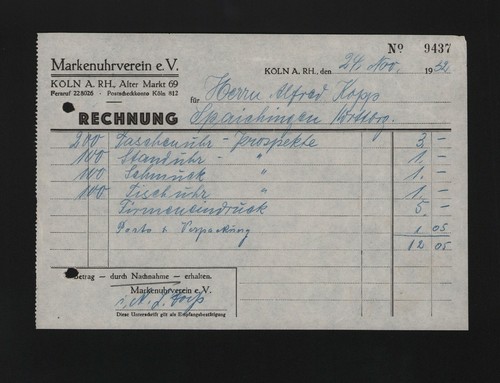 Nº 9437
Markenuhrverein e.V.
KÖLN A. RH., Alter Markt 69
Fernruf 228026 · Postscheckkonto Köln 812
KÖLN A. RH., den 24. Nov. 1932
für Herrn Alfred Kopp
Spaichingen Württbg.
RECHNUNG
200 Taschenuhr - Prospekte 3 -
100 Standuhr - " 1 -
100 Schmuck " 1. -
100 Tischuhr " 1 -
Firmeneindruck 5 -
Porto & Verpackung 1 05
12 05
Betrag — durch Nachnahme — erhalten.
Markenuhrverein e.V.
Diese Unterschrift gilt als Empfangsbestätigung